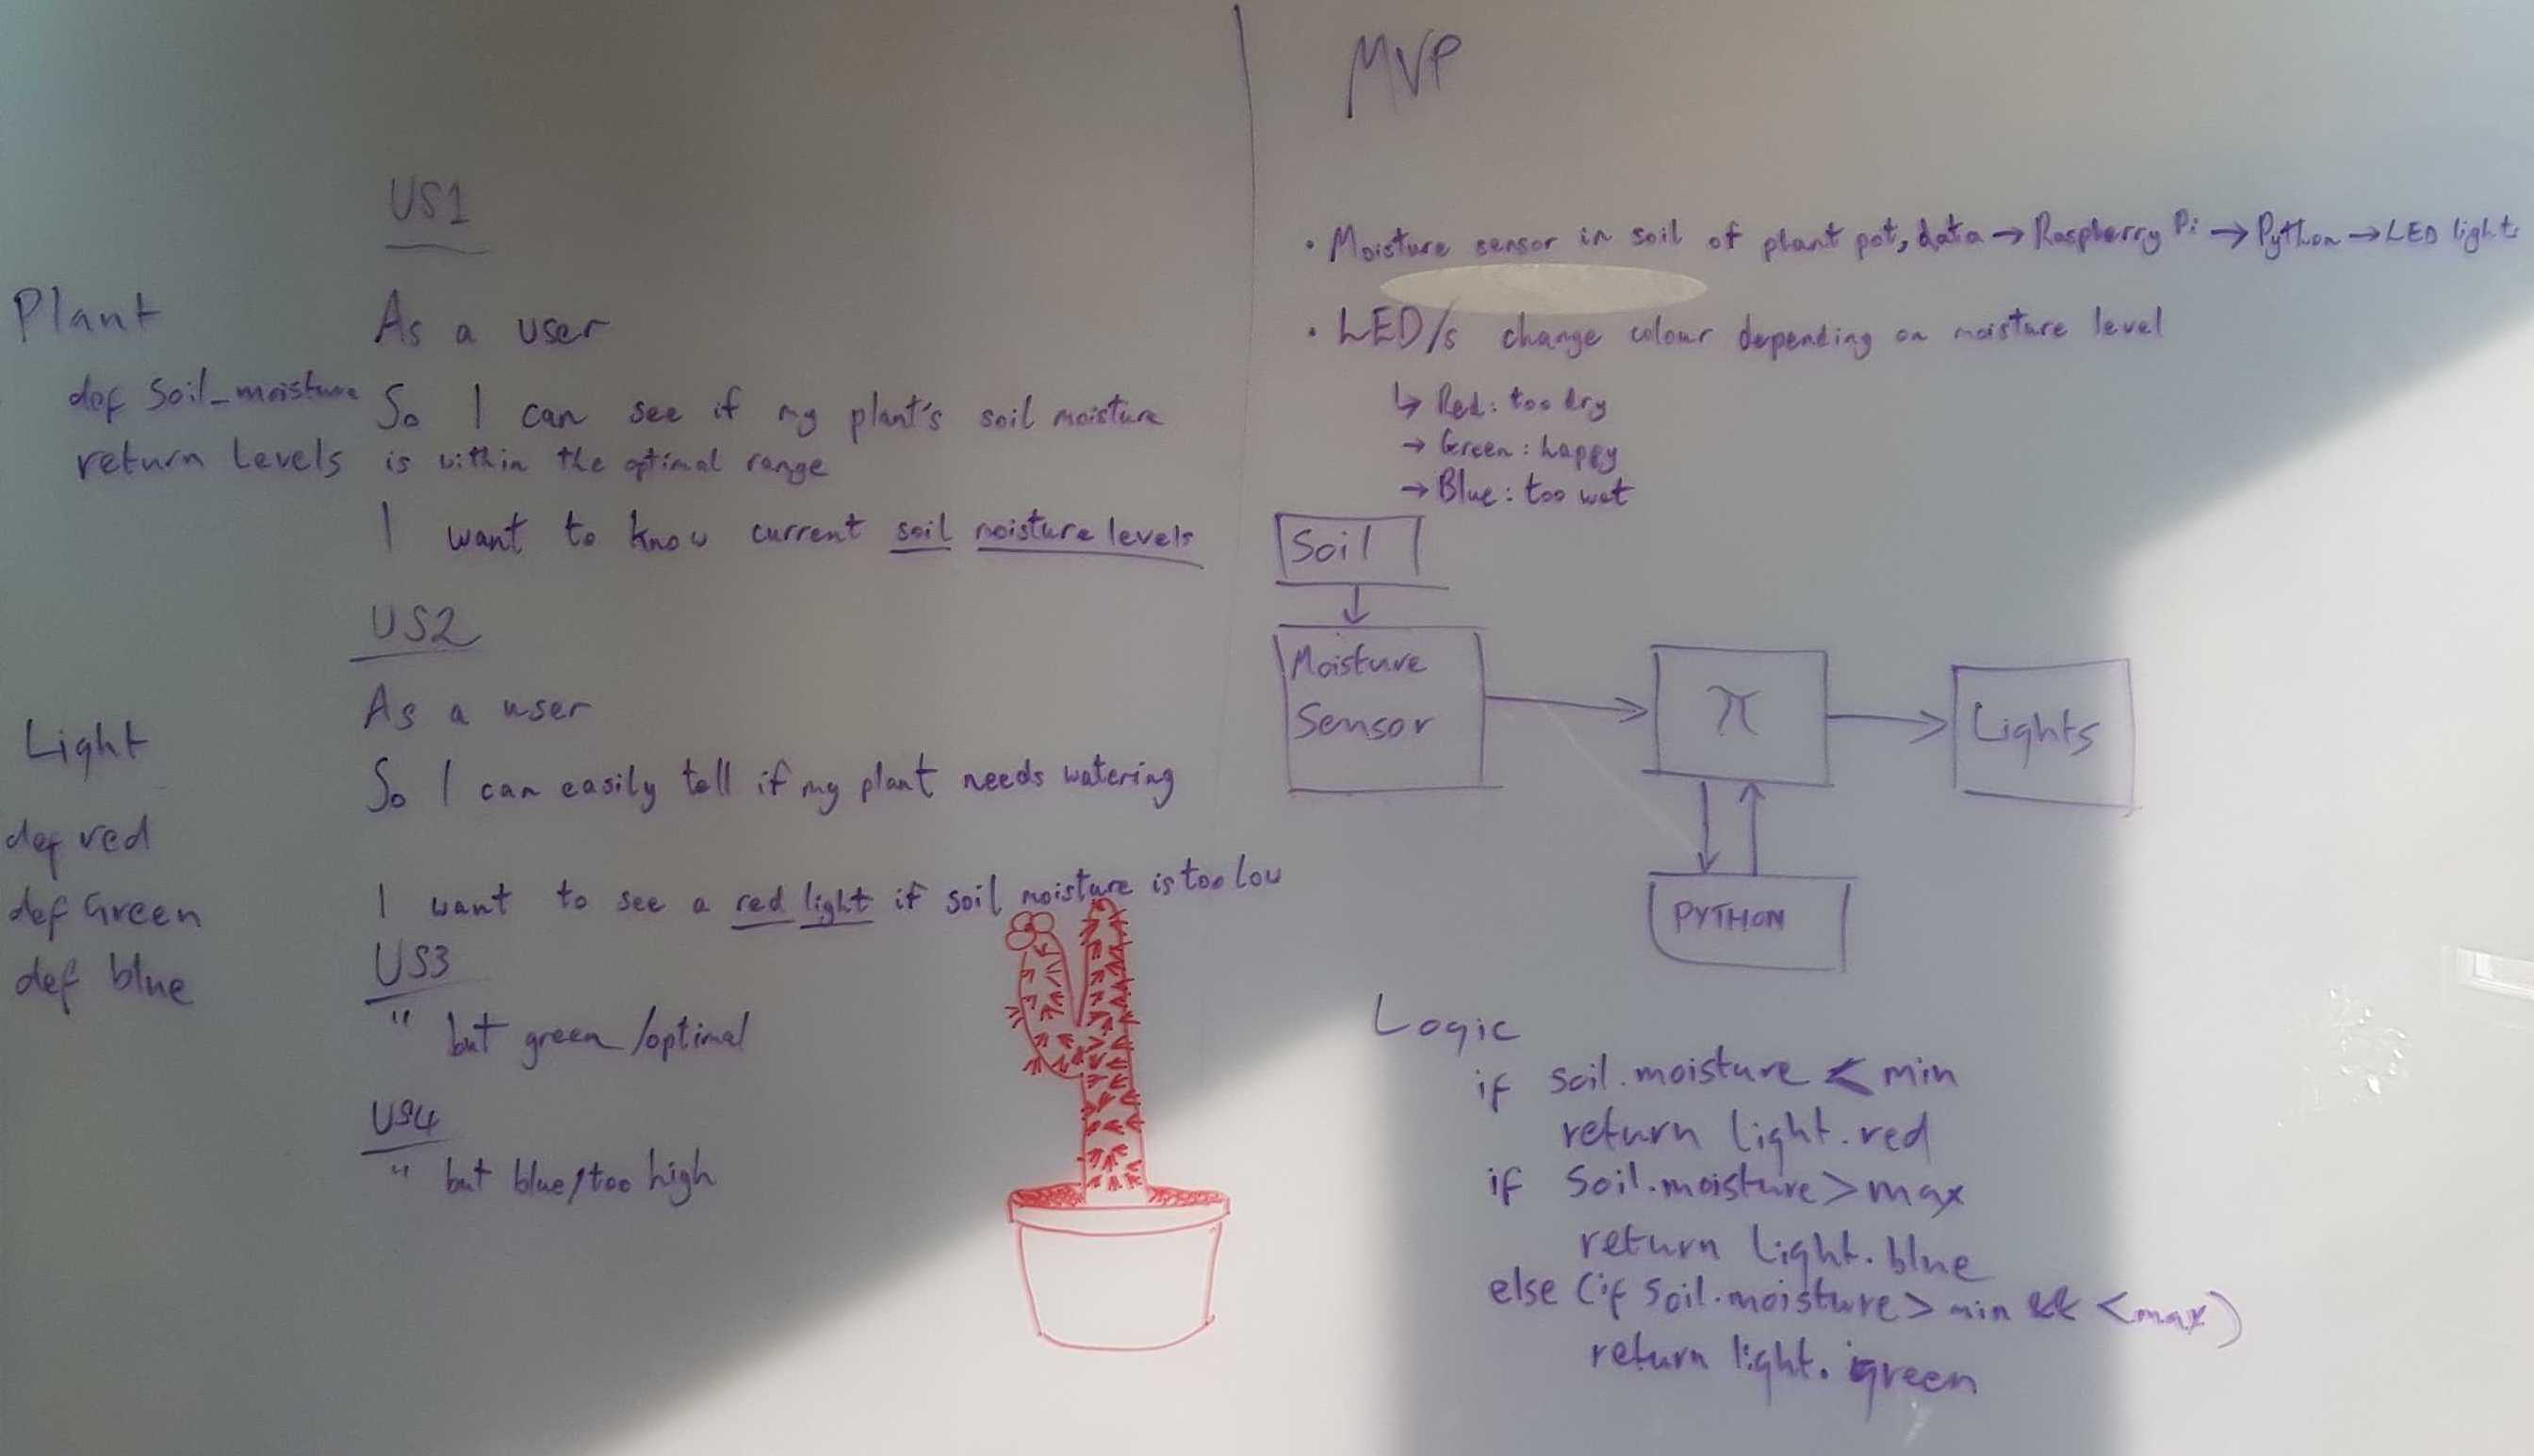 Plant
def Soil_moisture
return levels
Light
def red
def Green
def blue
US1
As a user
So I can see if my plant's soil moisture
is within the optimal range
I want to know current soil moisture levels
US2
As a user
So I can easily tell if my plant needs watering
I want to see a red light if soil moisture is too low
US3
" but green/optimal
US4
" but blue/too high
MVP
• Moisture sensor in soil of plant pot, data → Raspberry Pi → Python → LED lights
• LED/s change colour depending on moisture level
↳ Red: too dry
→ Green: happy
→ Blue: too wet
Soil
Moisture
Sensor
π
Lights
PYTHON
Logic
if soil.moisture < min
return light.red
if Soil.moisture > max
return light.blue
else (if Soil.moisture > min && < max)
return light.green